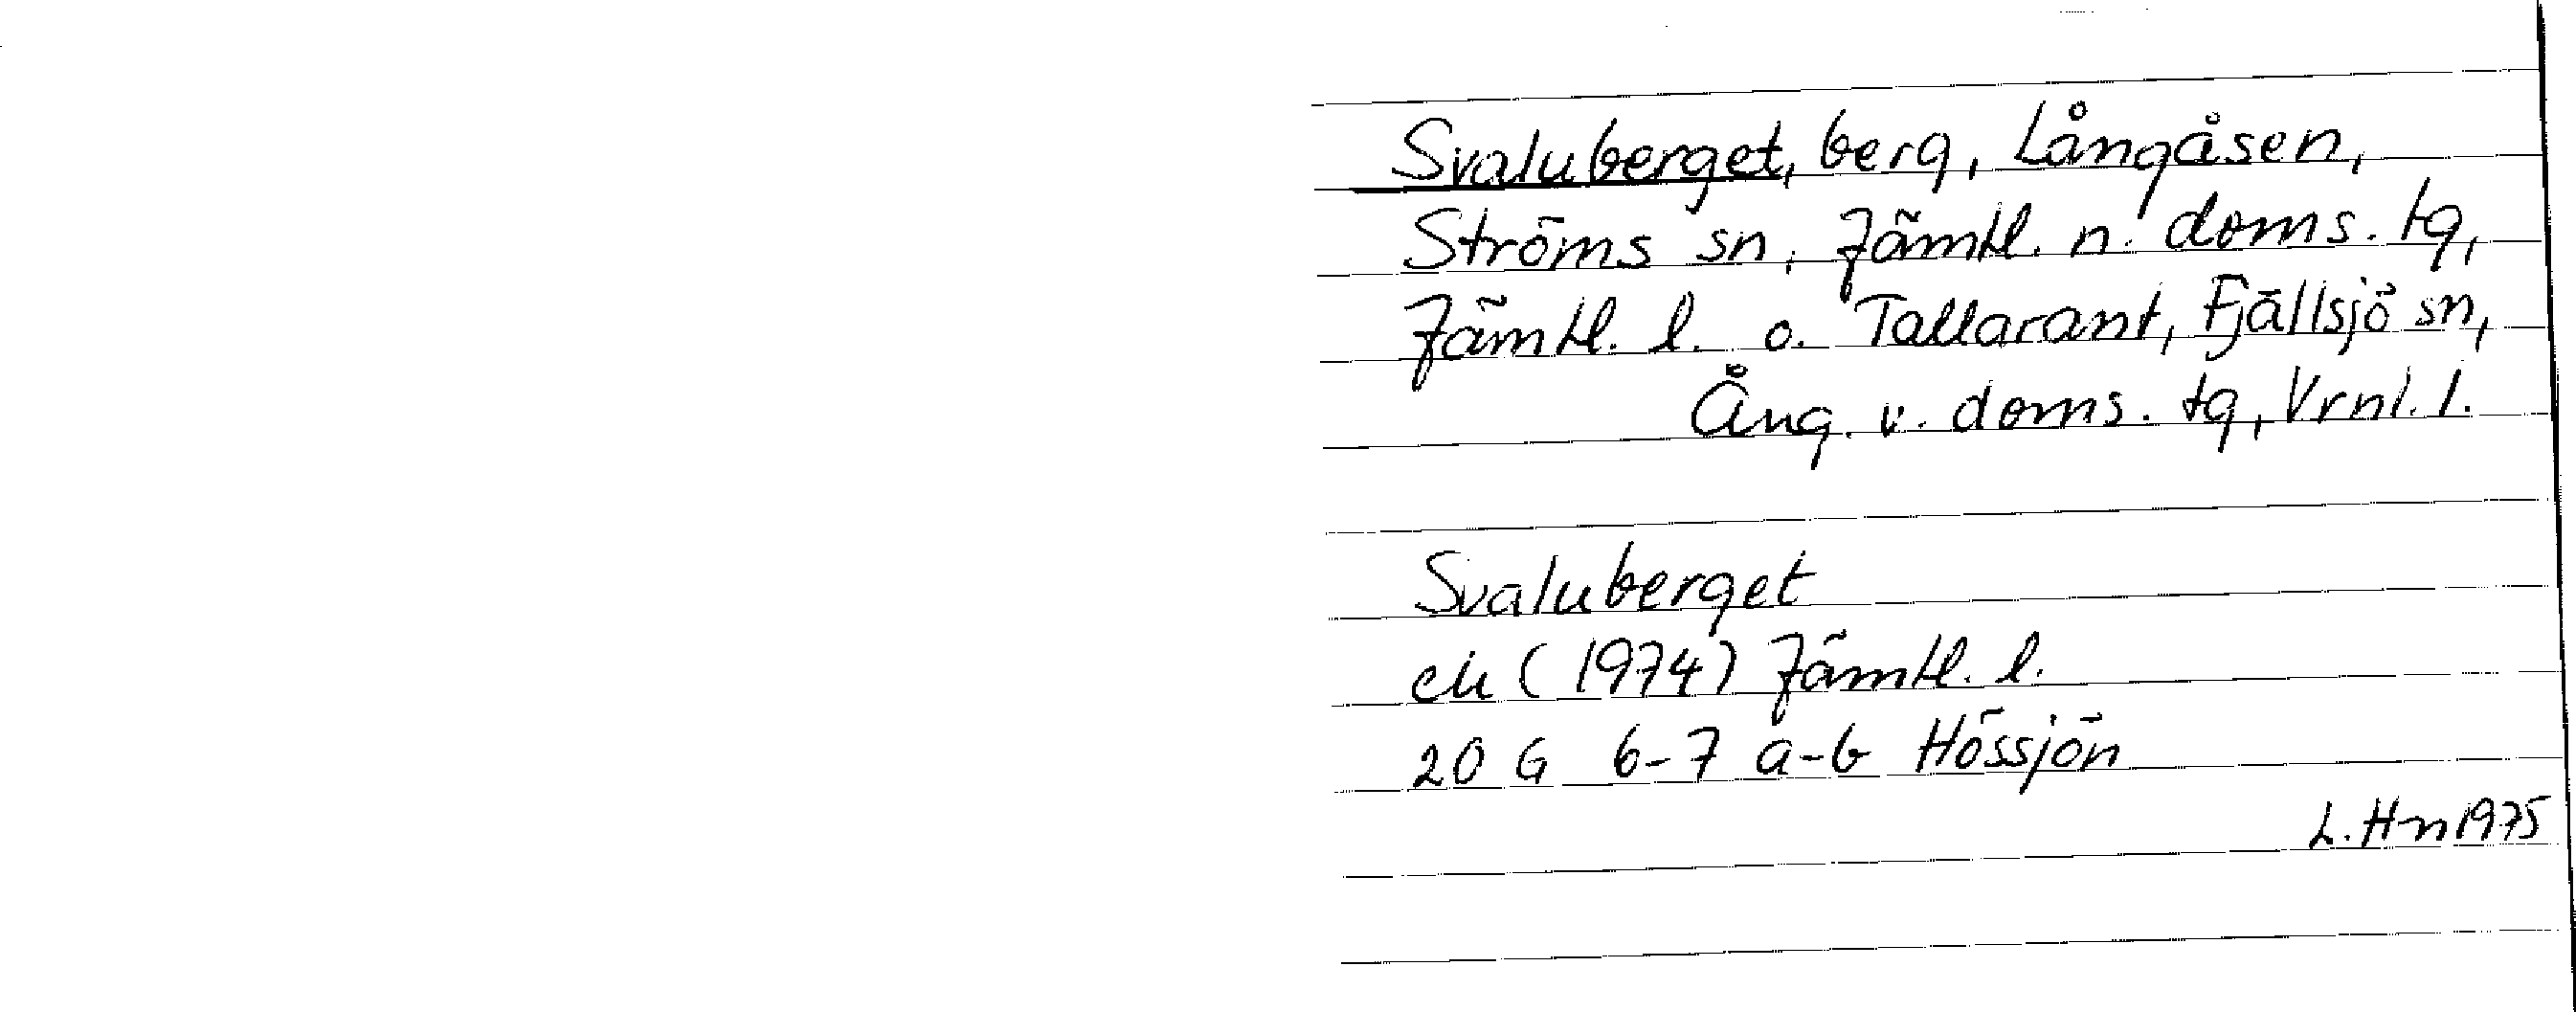 Svaluberget, berg, Långåsen,
Ströms sn, Jämtl. n. doms. tg,
Jämtl. l. o. Tallarant, Fjällsjö sn,
Ång. v. doms. tg, Vrnl. l.
Svaluberget
ek (1974) Jämtl. l.
20 G 6-7 a-b Hössjön
L. Hn 1975